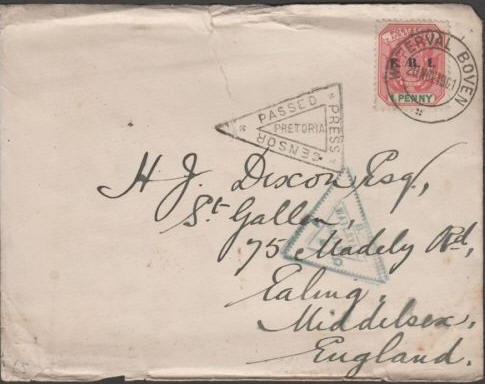 WATERVAL BOVEN
E. R. I.
1 PENNY
PASSED PRESS CENSOR
PRETORIA
H. J. Dixon Esq.,
St. Gallen,
75 Madely Rd,
Ealing,
Middelsex,
England.